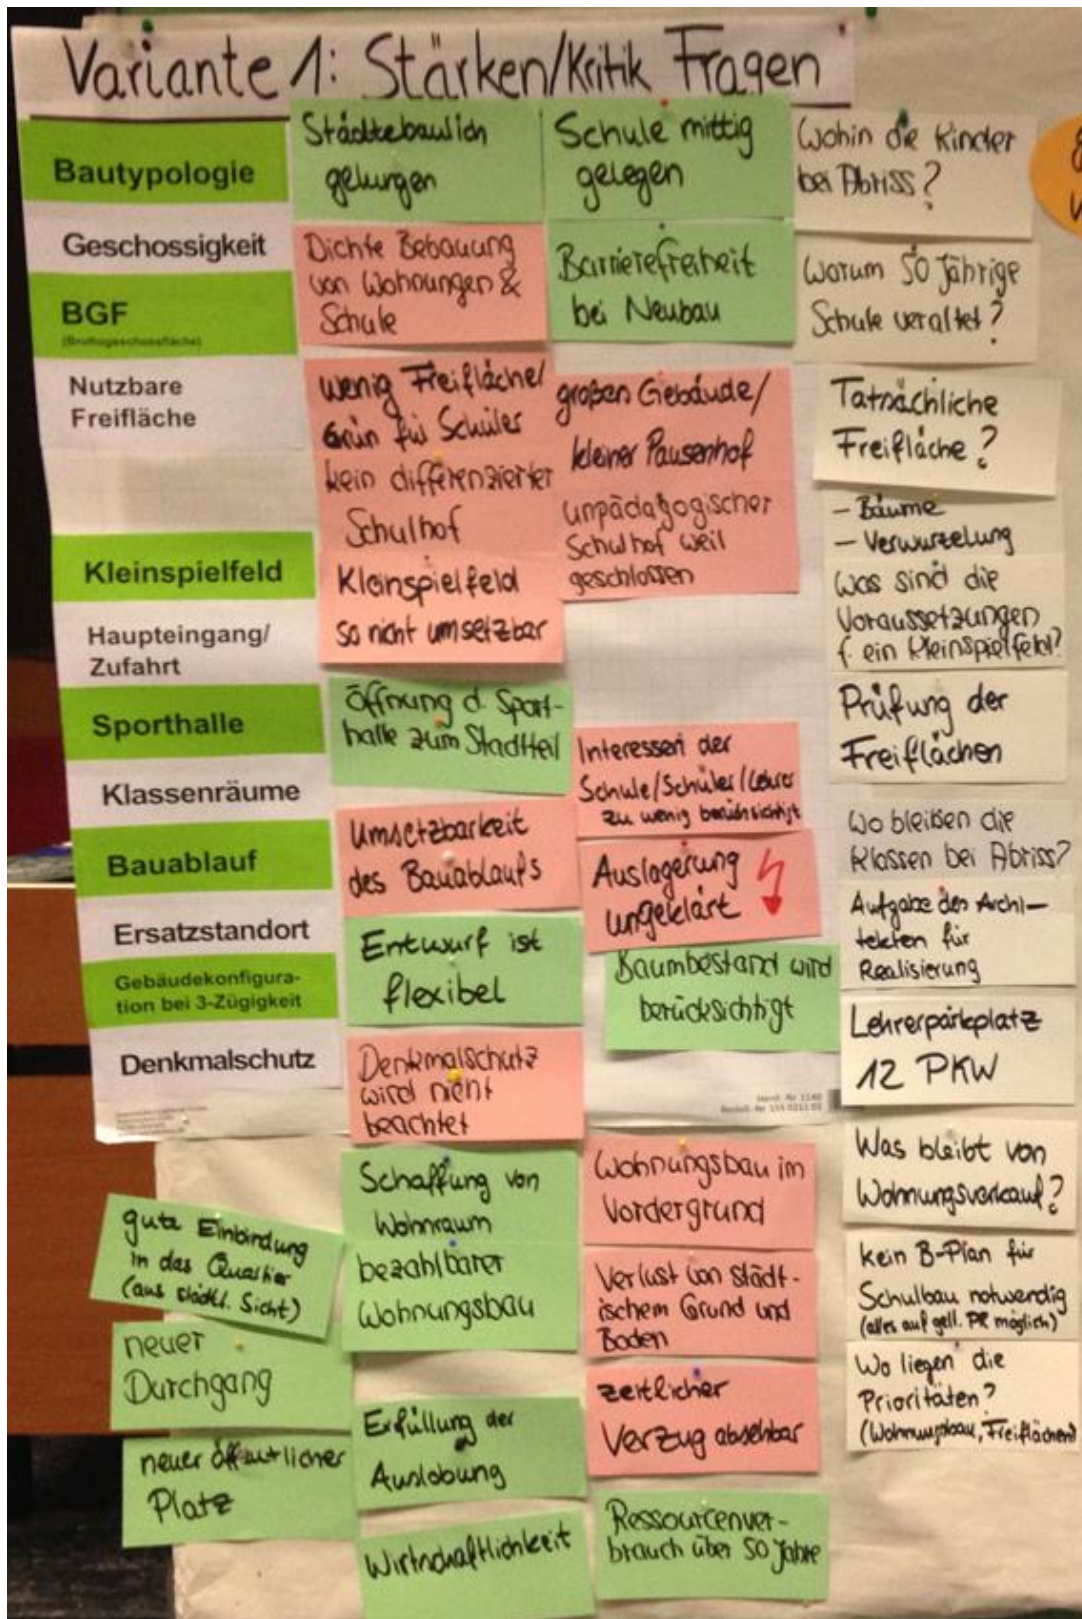 Variante 1: Stärken/Kritik Fragen
Bautypologie
Geschossigkeit
BGF
(Bruttogeschossfläche)
Nutzbare
Freifläche
Kleinspielfeld
Haupteingang/
Zufahrt
Sporthalle
Klassenräume
Bauablauf
Ersatzstandort
Gebäudekonfigura-
tion bei 3-Zügigkeit
Denkmalschutz
gute Einbindung
in das Quartier
(aus städtl. Sicht)
neuer
Durchgang
neuer öffentlicher
Platz
Städtebaulich
gelungen
Dichte Bebauung
von Wohnungen &
Schule
wenig Freifläche/
Grün für Schüler
kein differenzierter
Schulhof
Kleinspielfeld
so nicht umsetzbar
Öffnung d. Sport-
halle zum Stadtteil
Umsetzbarkeit
des Bauablaufs
Entwurf ist
flexibel
Denkmalschutz
wird nicht
beachtet
Schaffung von
Wohnraum
bezahlbarer
Wohnungsbau
Erfüllung der
Auslobung
Wirtschaftlichkeit
Schule mittig
gelegen
Barrierefreiheit
bei Neubau
großen Gebäude/
kleiner Pausenhof
unpädagogischer
Schulhof weil
geschlossen
Interessen der
Schule/Schüler/Lehrer
zu wenig berücksichtigt
Auslagerung
ungeklärt
Baumbestand wird
berücksichtigt
Wohnungsbau im
Vordergrund
Verlust von städt-
ischem Grund und
Boden
zeitlicher
Verzug absehbar
Ressourcenver-
brauch über 50 Jahre
Wohin die Kinder
bei Abriss?
Warum 50 jährige
Schule veraltet?
Tatsächliche
Freifläche?
- Bäume
- Verwurzelung
Was sind die
Voraussetzungen
f. ein Kleinspielfeld?
Prüfung der
Freiflächen
Wo bleiben die
Klassen bei Abriss?
Aufgabe des Archi-
tekten für
Realisierung
Lehrerparkplatz
12 PKW
Was bleibt von
Wohnungsverkauf?
kein B-Plan für
Schulbau notwendig
(alles auf gell. PR möglich)
Wo liegen die
Prioritäten?
(Wohnungsbau, Freiflächen)